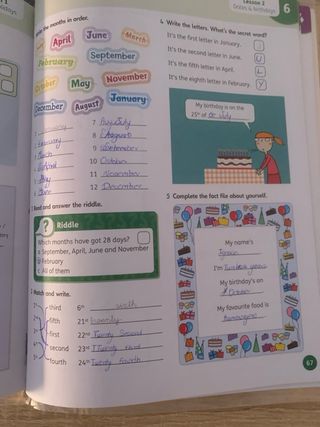 Lesson 2
Dates & birthdays
6
the months in order.
May
April
June
March
February
September
October
May
November
December
August
January
7
8 August
9 September
10 October
11 November
12 December
Read and answer the riddle.
Riddle
Which months have got 28 days?
a September, April, June and November
b February
c All of them
Match and write.
third
fifth
first
second
fourth
6th
21st
22nd Twenty Second
23rd Twenty third
24th Twenty fourth
4 Write the letters. What's the secret word?
It's the first letter in January.
It's the second letter in June.
It's the fifth letter in April.
It's the eighth letter in February.
My birthday is on the
25th of July
5 Complete the fact file about yourself.
My name's
I'm Twelve years
My birthday's on
October
My favourite food is
67